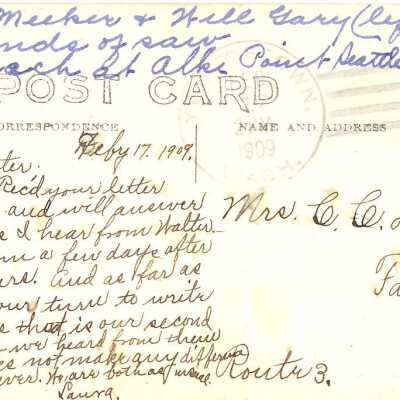 Meeker & Will Gary (lef
nds of saw
each at Alki Point Seattle
POST CARD
CORRESPONDENCE
NAME AND ADDRESS
1909
WASH.
Feby 17. 1909.
ter.
Rec'd your letter
and will answer
s I hear from Walter
a few days after
urs. And as far as
our turn to write
s that is our second
we heard from them
es not make any difference
ever. We are both as usual.
Laura.
Mrs. C. C.
Fa
Route 3.